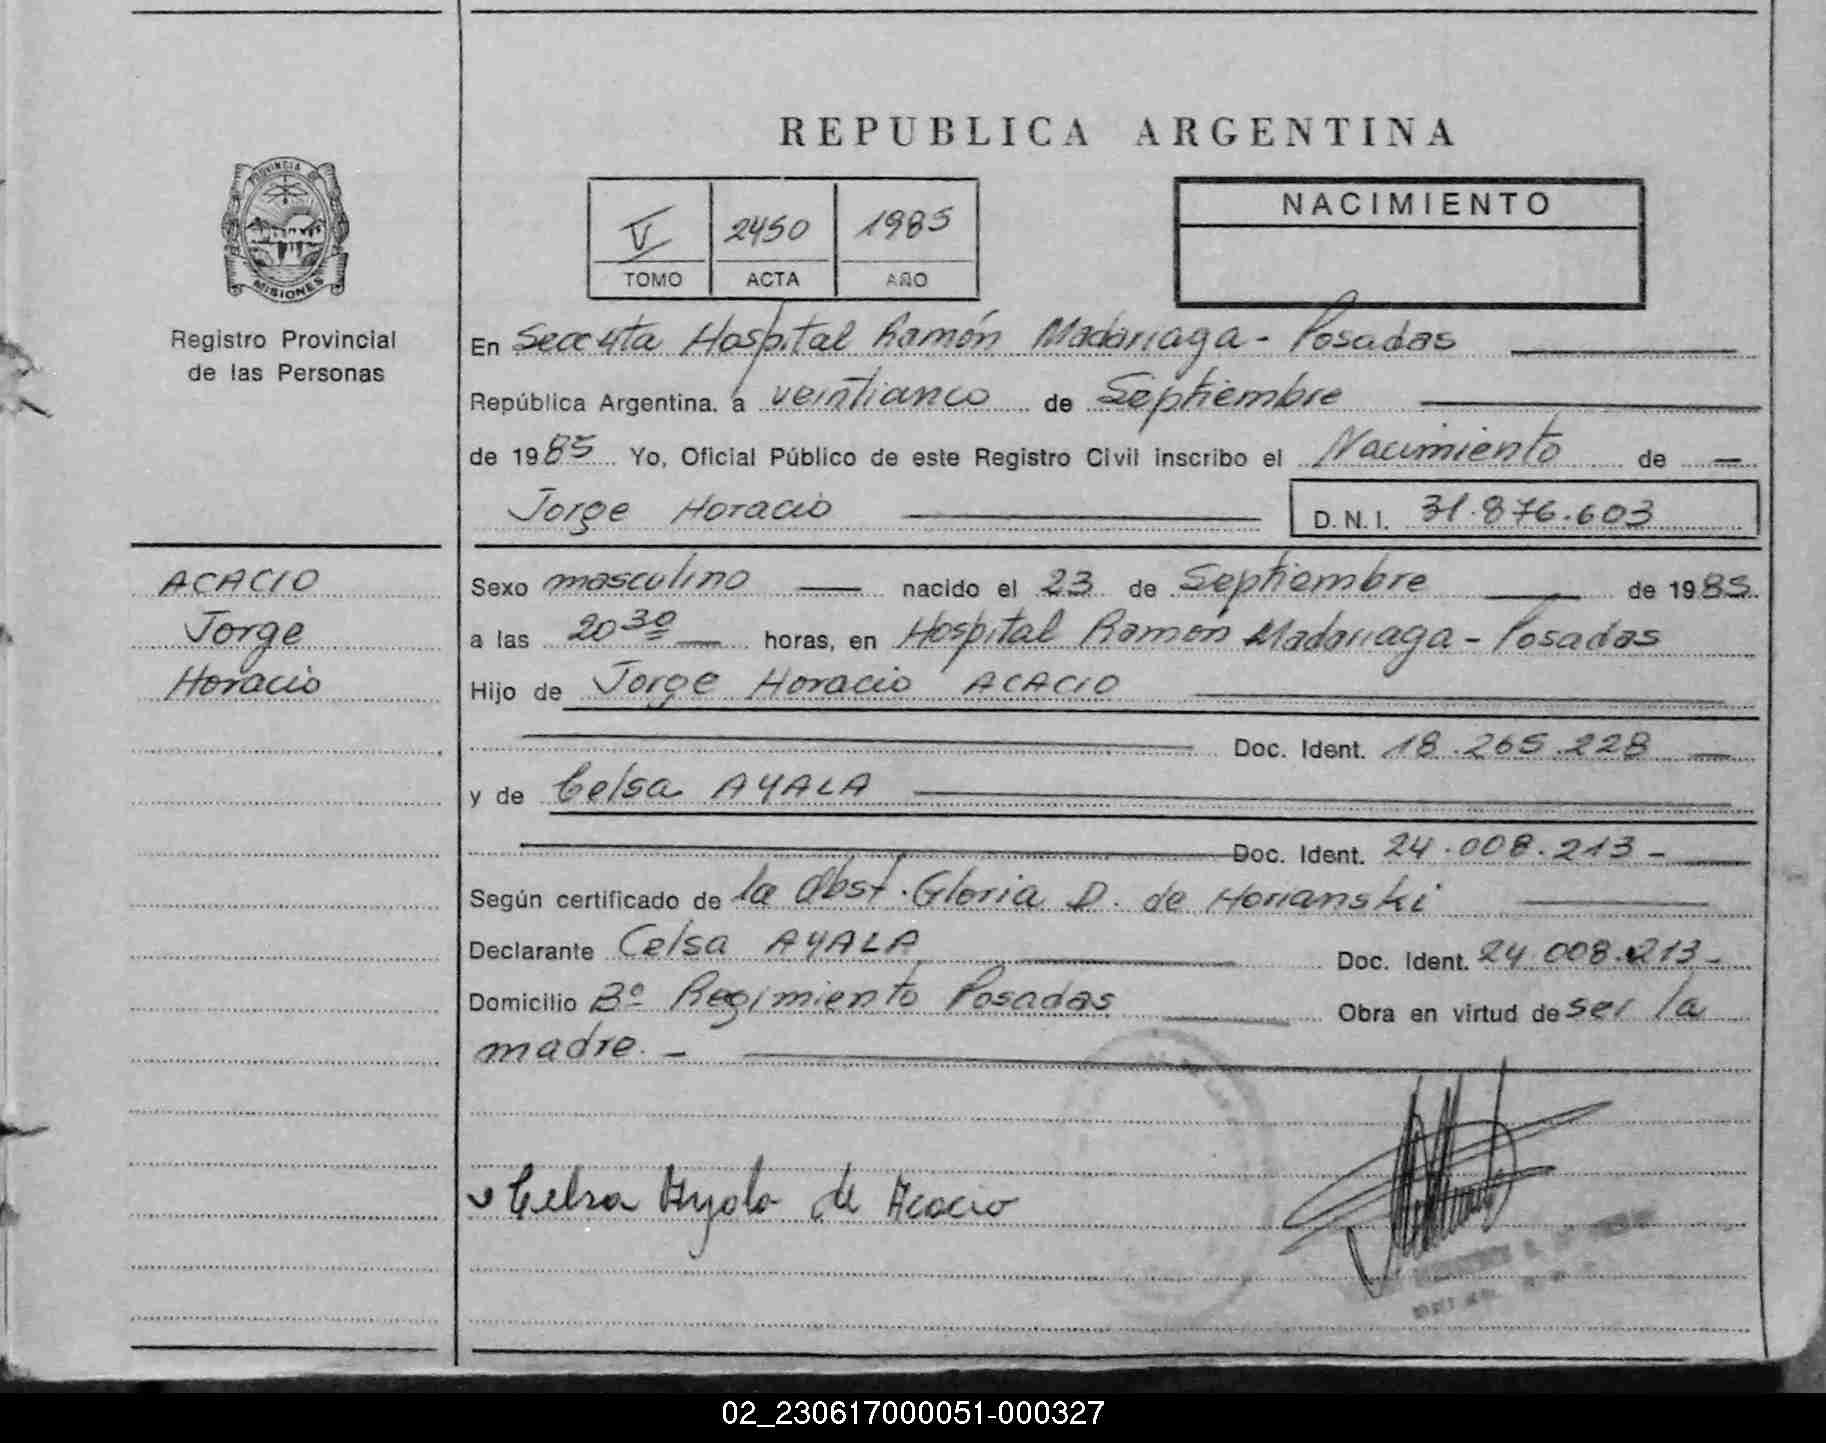 REPUBLICA ARGENTINA
PROVINCIA DE
MISIONES
Registro Provincial
de las Personas
V 2450 1985
TOMO ACTA AÑO
NACIMIENTO
En Secc 4ta Hospital Ramón Madariaga - Posadas
República Argentina. a veinticinco de Septiembre
de 1985 Yo, Oficial Público de este Registro Civil inscribo el Nacimiento de
Jorge Horacio D.N.I. 31.876.603
ACACIO
Jorge
Horacio
Sexo masculino nacido el 23 de Septiembre de 1985.
a las 20 30 horas, en Hospital Ramón Madariaga - Posadas
Hijo de Jorge Horacio ACACIO
Doc. Ident. 18.265.228
y de Celsa AYALA
Doc. Ident. 24.008.213 -
Según certificado de la Obst. Gloria D. de Horianski
Declarante Celsa AYALA Doc. Ident. 24.008.213 -
Domicilio Bº Regimiento Posadas Obra en virtud de ser la
madre. -
Celsa Ayala de Acacio
02_230617000051-000327